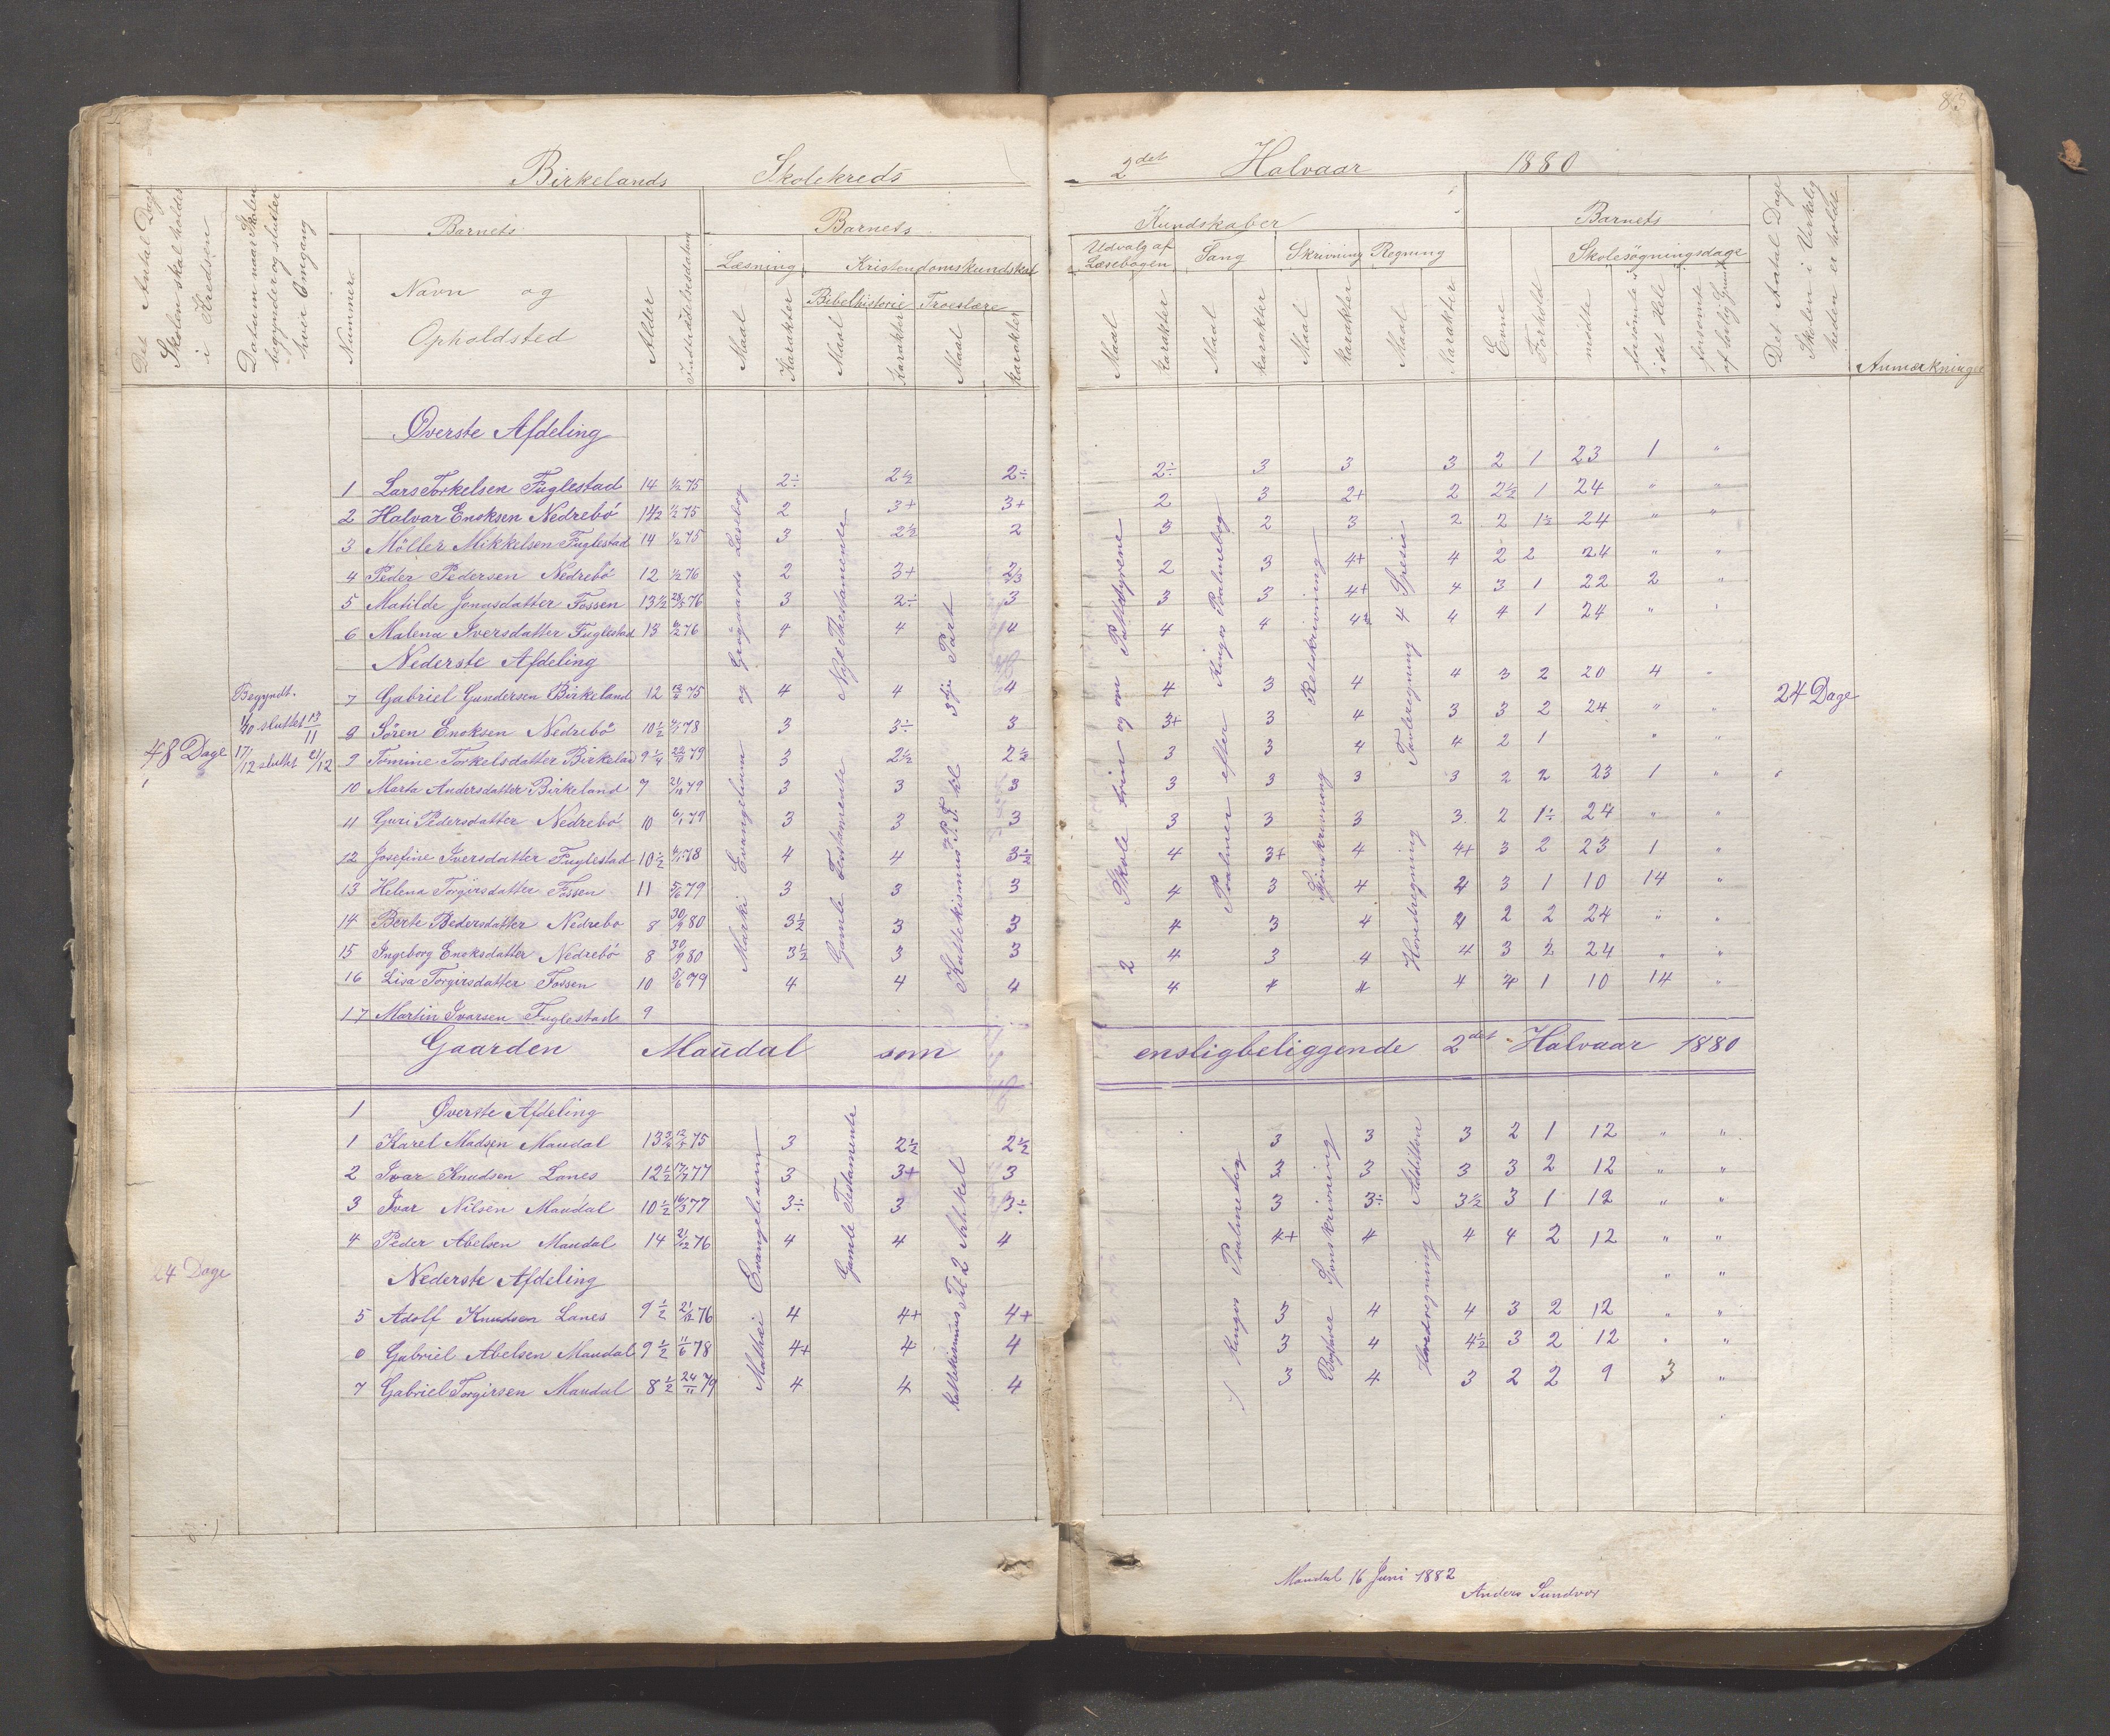 83
Birkelands Skolekreds 2det Halvaar 1880
Det Antal Dage Skolen skal holdes i Kredsen
Datum naar Skolen begynder og slutter hver Omgang
Nummere
Barnets
Navn og Opholdsted
Alder
Indtrædelsesdatum
Barnets Kundskaber
Læsning
Maal Karakter
Kristendomskundskab
Bibelhistorie Troeslære
Maal Karakter Maal Karakter
Udvalg af Læsebogen
Maal Karakter
Sang
Maal Karakter
Skrivning
Maal Karakter
Regning
Maal Karakter
Barnets
Evne Forhold
Skolesögningsdage
mödte
forsömte i det Hele
forsömte af lovlig Grund
Det Antal Dage Skolen i Virkeligheden er holdt
Anmærkninger
Øverste Afdeling
1 Lars Torkelsen Fuglestad 14 1/2 75 2÷ 2½ 2÷ 2÷ 3 3 3 2 1 23 1 "
2 Halvar Enoksen Nedrebö 14½ 1/2 75 2 3+ 3+ 2 3 2+ 2 2½ 1 24 " "
3 Möller Mikkelsen Fuglestad 14 1/2 75 3 2½ 2 3 2 3 2 2 1½ 24 " "
4 Peder Pedersen Nedrebö 12 1/2 76 2 3+ 2/3 2 3 4+ 4 2 2 24 " "
5 Matilde Jonasdatter Fossen 13½ 28/5 76 3 2÷ 3 3 3 4+ 4 3 1 22 2 "
6 Malena Iversdatter Fuglestad 13 6/2 76 4 4 4 4 4 4½ 4 4 1 24 "
Nederste Afdeling
7 Gabriel Gundersen Birkeland 12 75 4 4 4 4 3 4 4 3 2 20 4
8 Sören Enoksen Nedrebö 10½ 78 3 3÷ 3 3+ 3 4 3 3 2 24 " "
9 Tomine Torkelsdatter Birkelan 9¼ 79 3 2½ 2½ 3 3 4 4 2 1 " "
10 Marta Andersdatter Birkeland 9 79 3 3 3 3 3 3 3 2 2 23 1 "
11 Guri Pedersdatter Nedrebö 10 6/1 79 3 3 3 3 3 3 3 2 1÷ 24 " "
12 Josefine Iversdatter Fuglestad 10½ 78 4 4 3½ 4 3+ 4 4+ 3 2 23 1 "
13 Helena Torgirsdatter Fossen 11 5/6 79 3 3 3 4 3 4 4 3 1 10 14 "
14 Berte Pedersdatter Nedrebo 8 30/9 80 3½ 3 3 4 3 4 4 2 2 24 " "
15 Ingeborg Enoksdatter Nedrebö 8 30/9 80 3½ 3 3 4 3 4 4 3 2 24 " "
16 Lisa Torgirsdatter Fossen 10 5/6 79 4 4 4 4 4 4 4 1 10 14 "
17 Martin Ivarsen Fuglestad 9
48 Dage
Begyndt
1/10 sluttet 13/11
17/12 sluttet 21/12
og Gjøgaards Læsebog
Marki Evangelium
Nye Thestamente
Gamle Testamente
3dje Part
Kattekismus P. F. kl
2 Skole trin og om Pattedyrene
Psalmer efter Kingos Psalmebog
Retskrivning
Sjönskrivning
4 Spesie
Tavleregning
Hovedregning
24 Dage
Gaarden Maudal som ensligbeliggende 2det Halvaar 1880
1 Øverste Afdeling
1 Karel Madsen Maudal 13¾ 75 3 2½ 2½ 3 3 3 2 1 12 " "
2 Ivar Knudsen Lanes 12½ 77 3 3+ 3 3 3 3 3 2 12 " "
3 Ivar Nilsen Maudal 10½ 16/3 77 3÷ 3 3÷ 3 3÷ 3½ 3 1 12 " "
4 Peder Abelsen Maudal 14 21/12 76 4 4 4 4+ 4 4 4 2 12 " "
Nederste Afdeling " "
5 Adolf Knudsen Lanes 9½ 21/12 76 4 4+ 4+ 3 4 4 3 2 12 " "
6 Gabriel Abelsen Maudal 9½ 11/6 78 4+ 4 4 3 4 4½ 3 2 12 " "
7 Gabriel Torgirsen Maudal 8½ 24/11 79 4 4 4 3 4 3 2 2 9 3 "
24 Dage
Mathæi Evangelium
Gamle Testamente
Kattekismus Til 2 Artikel
Kingos Psalmebog
Sjönskrivning
Addition
Hovedregning
Maudal 16 Juni 1882
Anders Sundvor